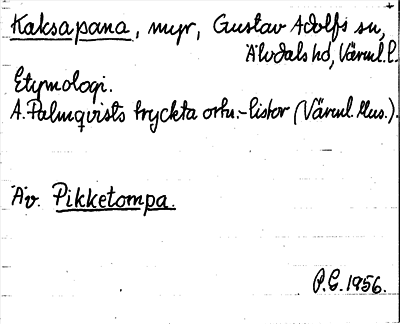 Kaksapana, myr, Gustav Adolfs sn,
Älvdals hd, Värml. l.
Etymologi.
A. Palmqvists tryckta ortn.-listor (Värml. Mus.).
Äv. Pikketompa.
P.G. 1956.